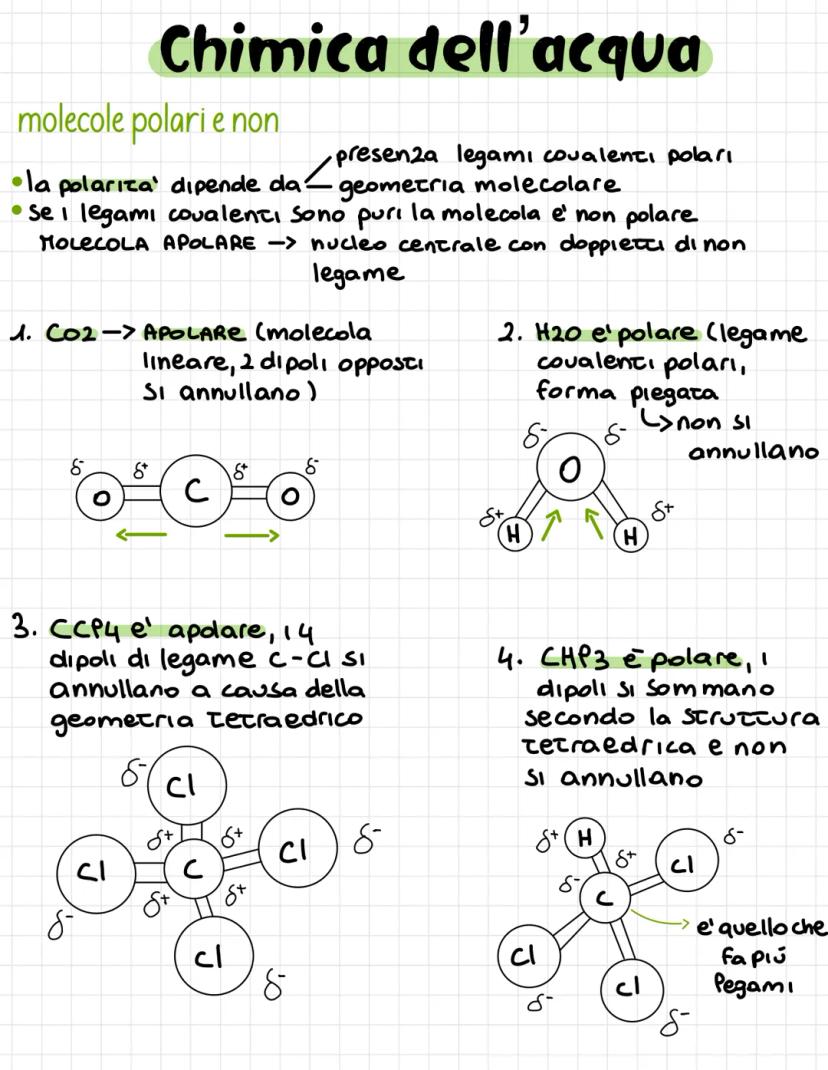 Chimica dell'acqua
molecole polari e non
presenza legami covalenti polari
• la polarita' dipende da geometria molecolare
• Se i legami covalenti sono puri la molecola e' non polare
MOLECOLA APOLARE –> nucleo centrale con doppietti di non
legame
1. CO2 –> APOLARE (molecola
lineare, 2 dipoli opposti
si annullano)
2. H2O e' polare (legame
covalenti polari,
forma piegata
↳ non si
annullano
δ- δ+ δ+ δ-
O C O
δ- δ-
O
δ+ δ+
H H
3. CCP4 e' apolare, i 4
dipoli di legame C-Cl si
annullano a causa della
geometria tetraedrico
4. CHP3 è polare, i
dipoli si sommano
secondo la struttura
tetraedrica e non
si annullano
δ- Cl
δ+ δ+ Cl δ-
Cl C
δ- δ+ δ+
Cl
δ-
δ+ H δ-
δ+ Cl
δ- C
e' quello che
fa più
legami
Cl
Cl
δ-
δ-